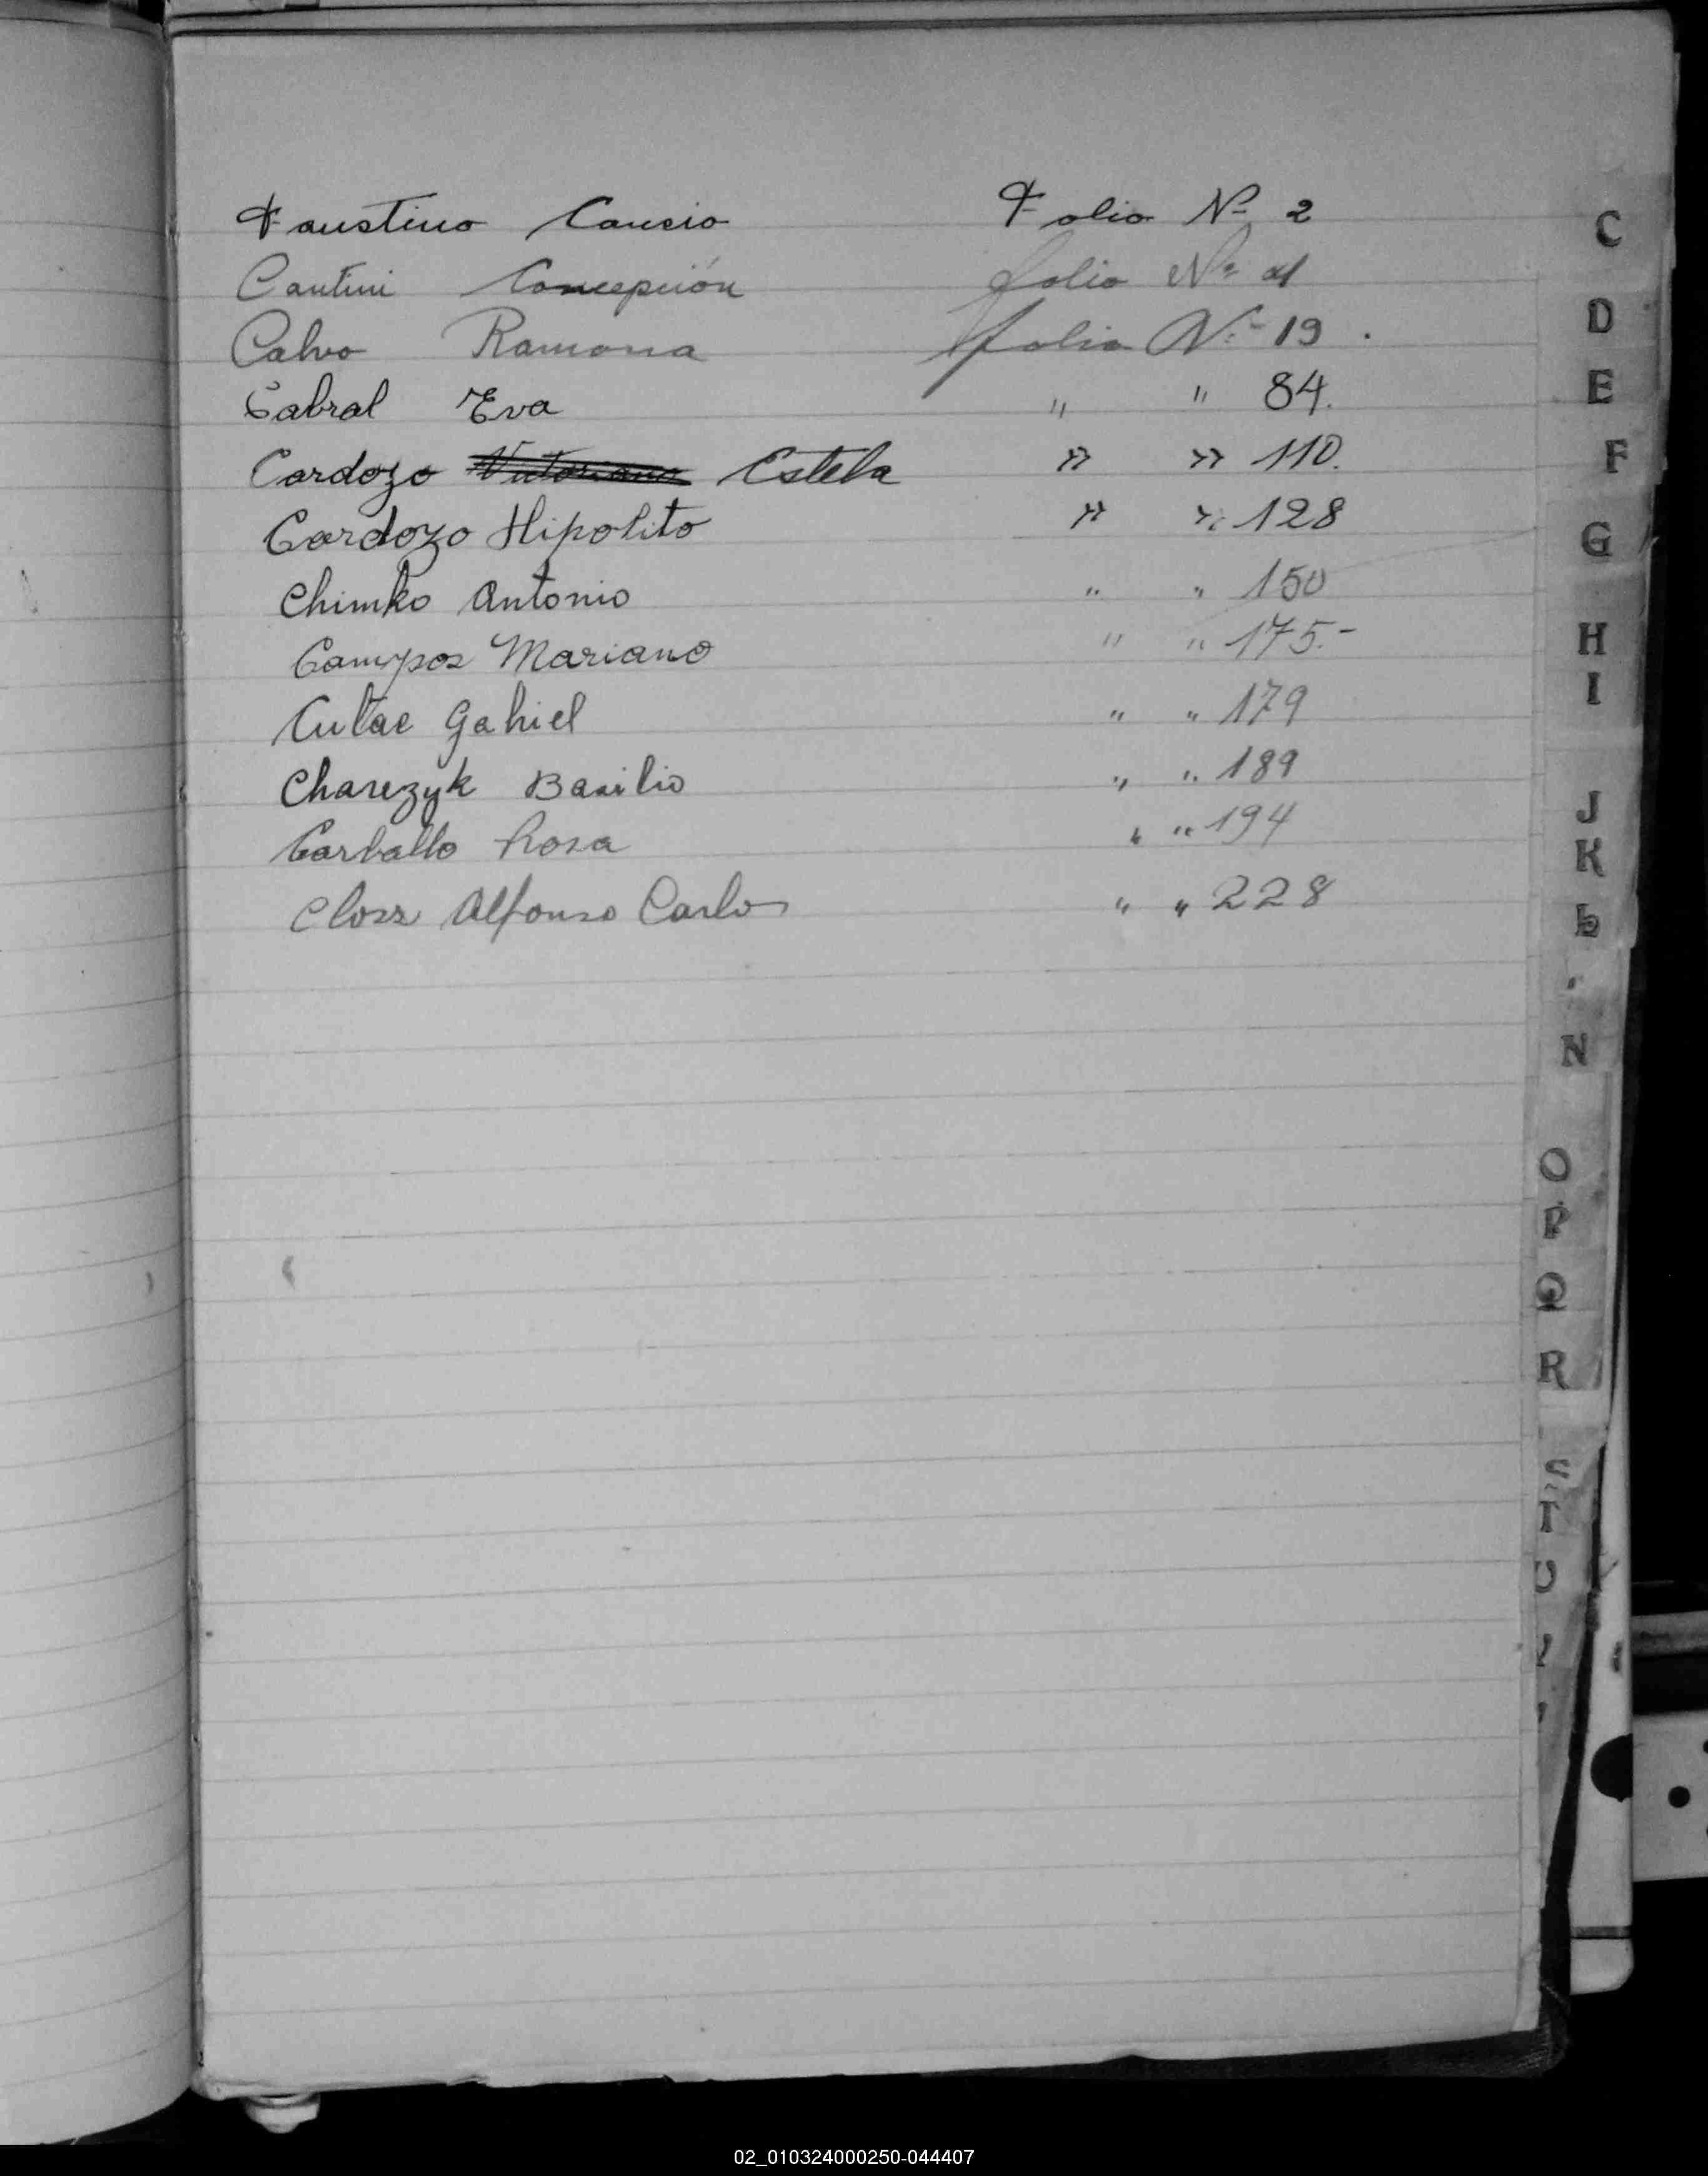 Faustino Cancio Folio Nº 2
Cantini Concepción folio Nº
Calvo Ramona folio Nº 19.
Cabral Eva " " 84.
Cardozo Victoriano Estela " " 110.
Cardozo Hipolito " " 128
Chimko Antonio " " 150
Campos Mariano " " 175.-
Cutae Gahiel " " 179
Charezyk Basilio " " 189
Carballo Rosa " " 194
Closs Alfonso Carlos " " 228
C
D
E
F
G
H
I
J
K
L
N
O
P
Q
R
S
T
U
02_010324000250-044407